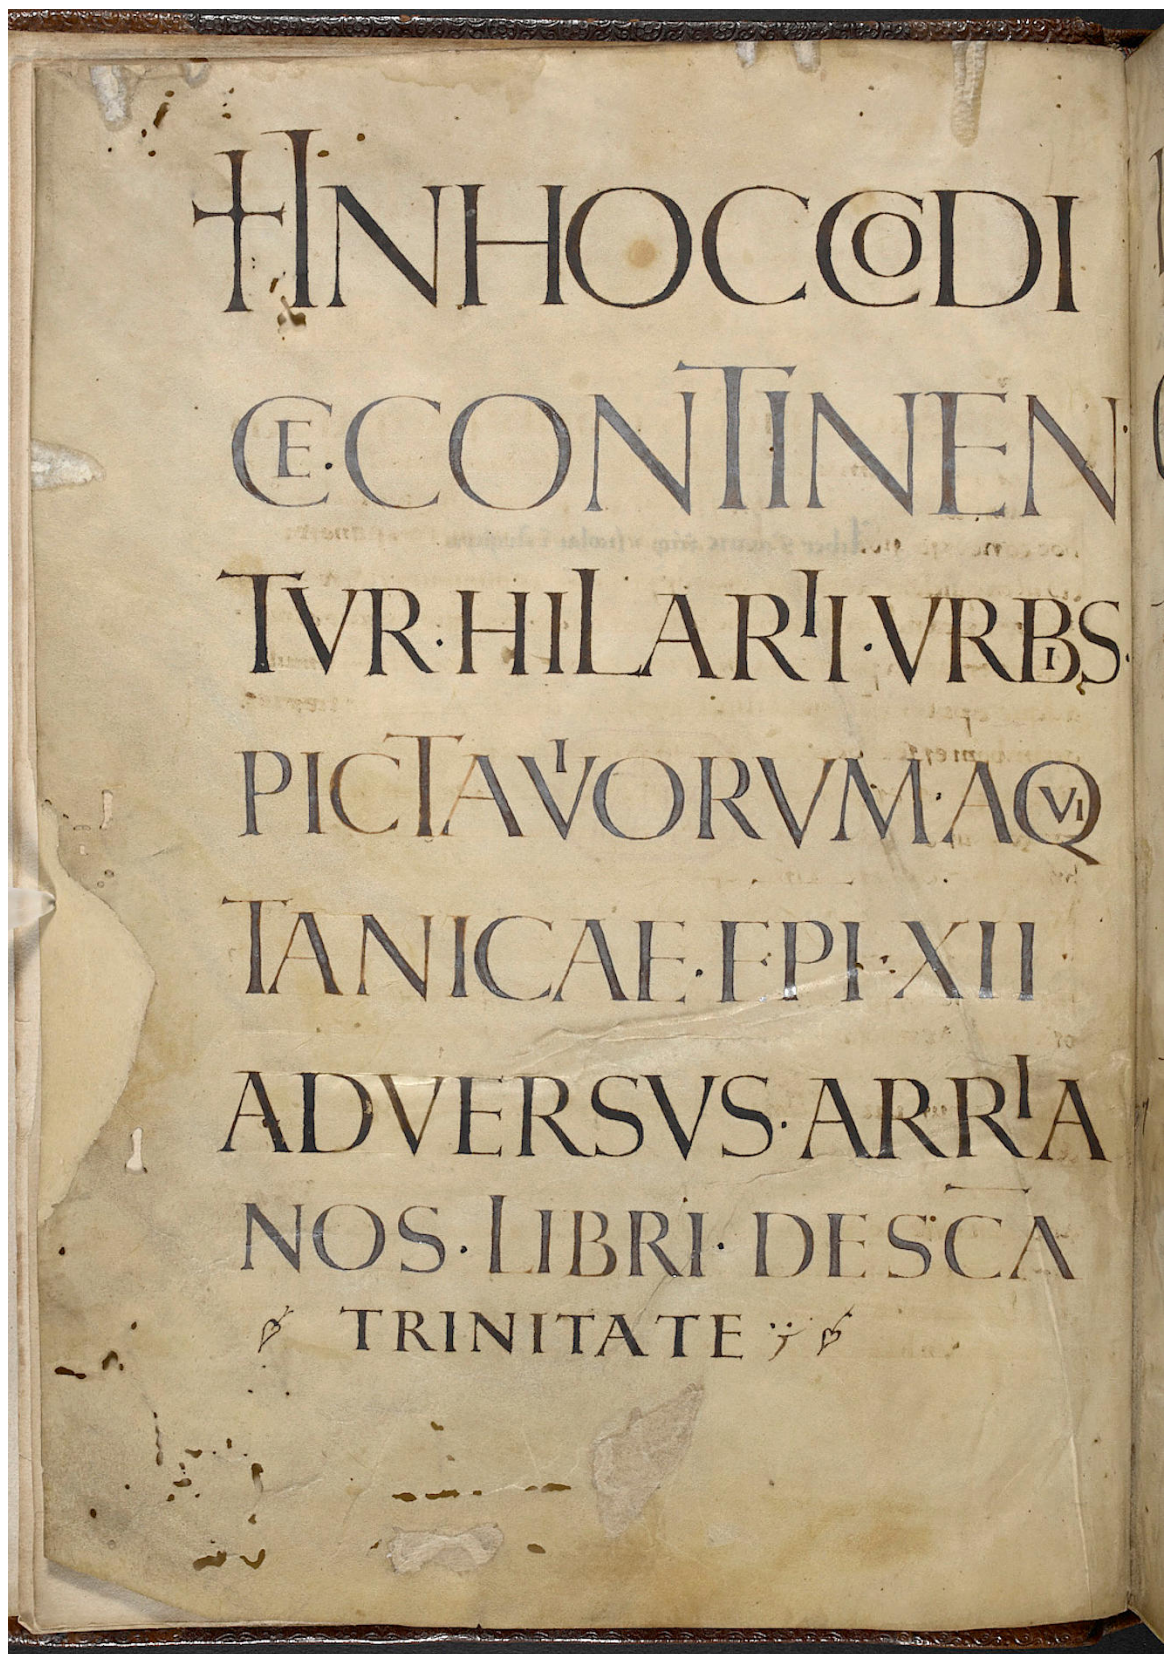 + IN HOC CODI
CE · CONTINEN
TVR · HILARII · VRBIS ·
PICTAVIORVM · AQVI
TANICAE · EPI · XII
ADVERSVS · ARRIA
NOS · LIBRI · DE SC̅A
TRINITATE